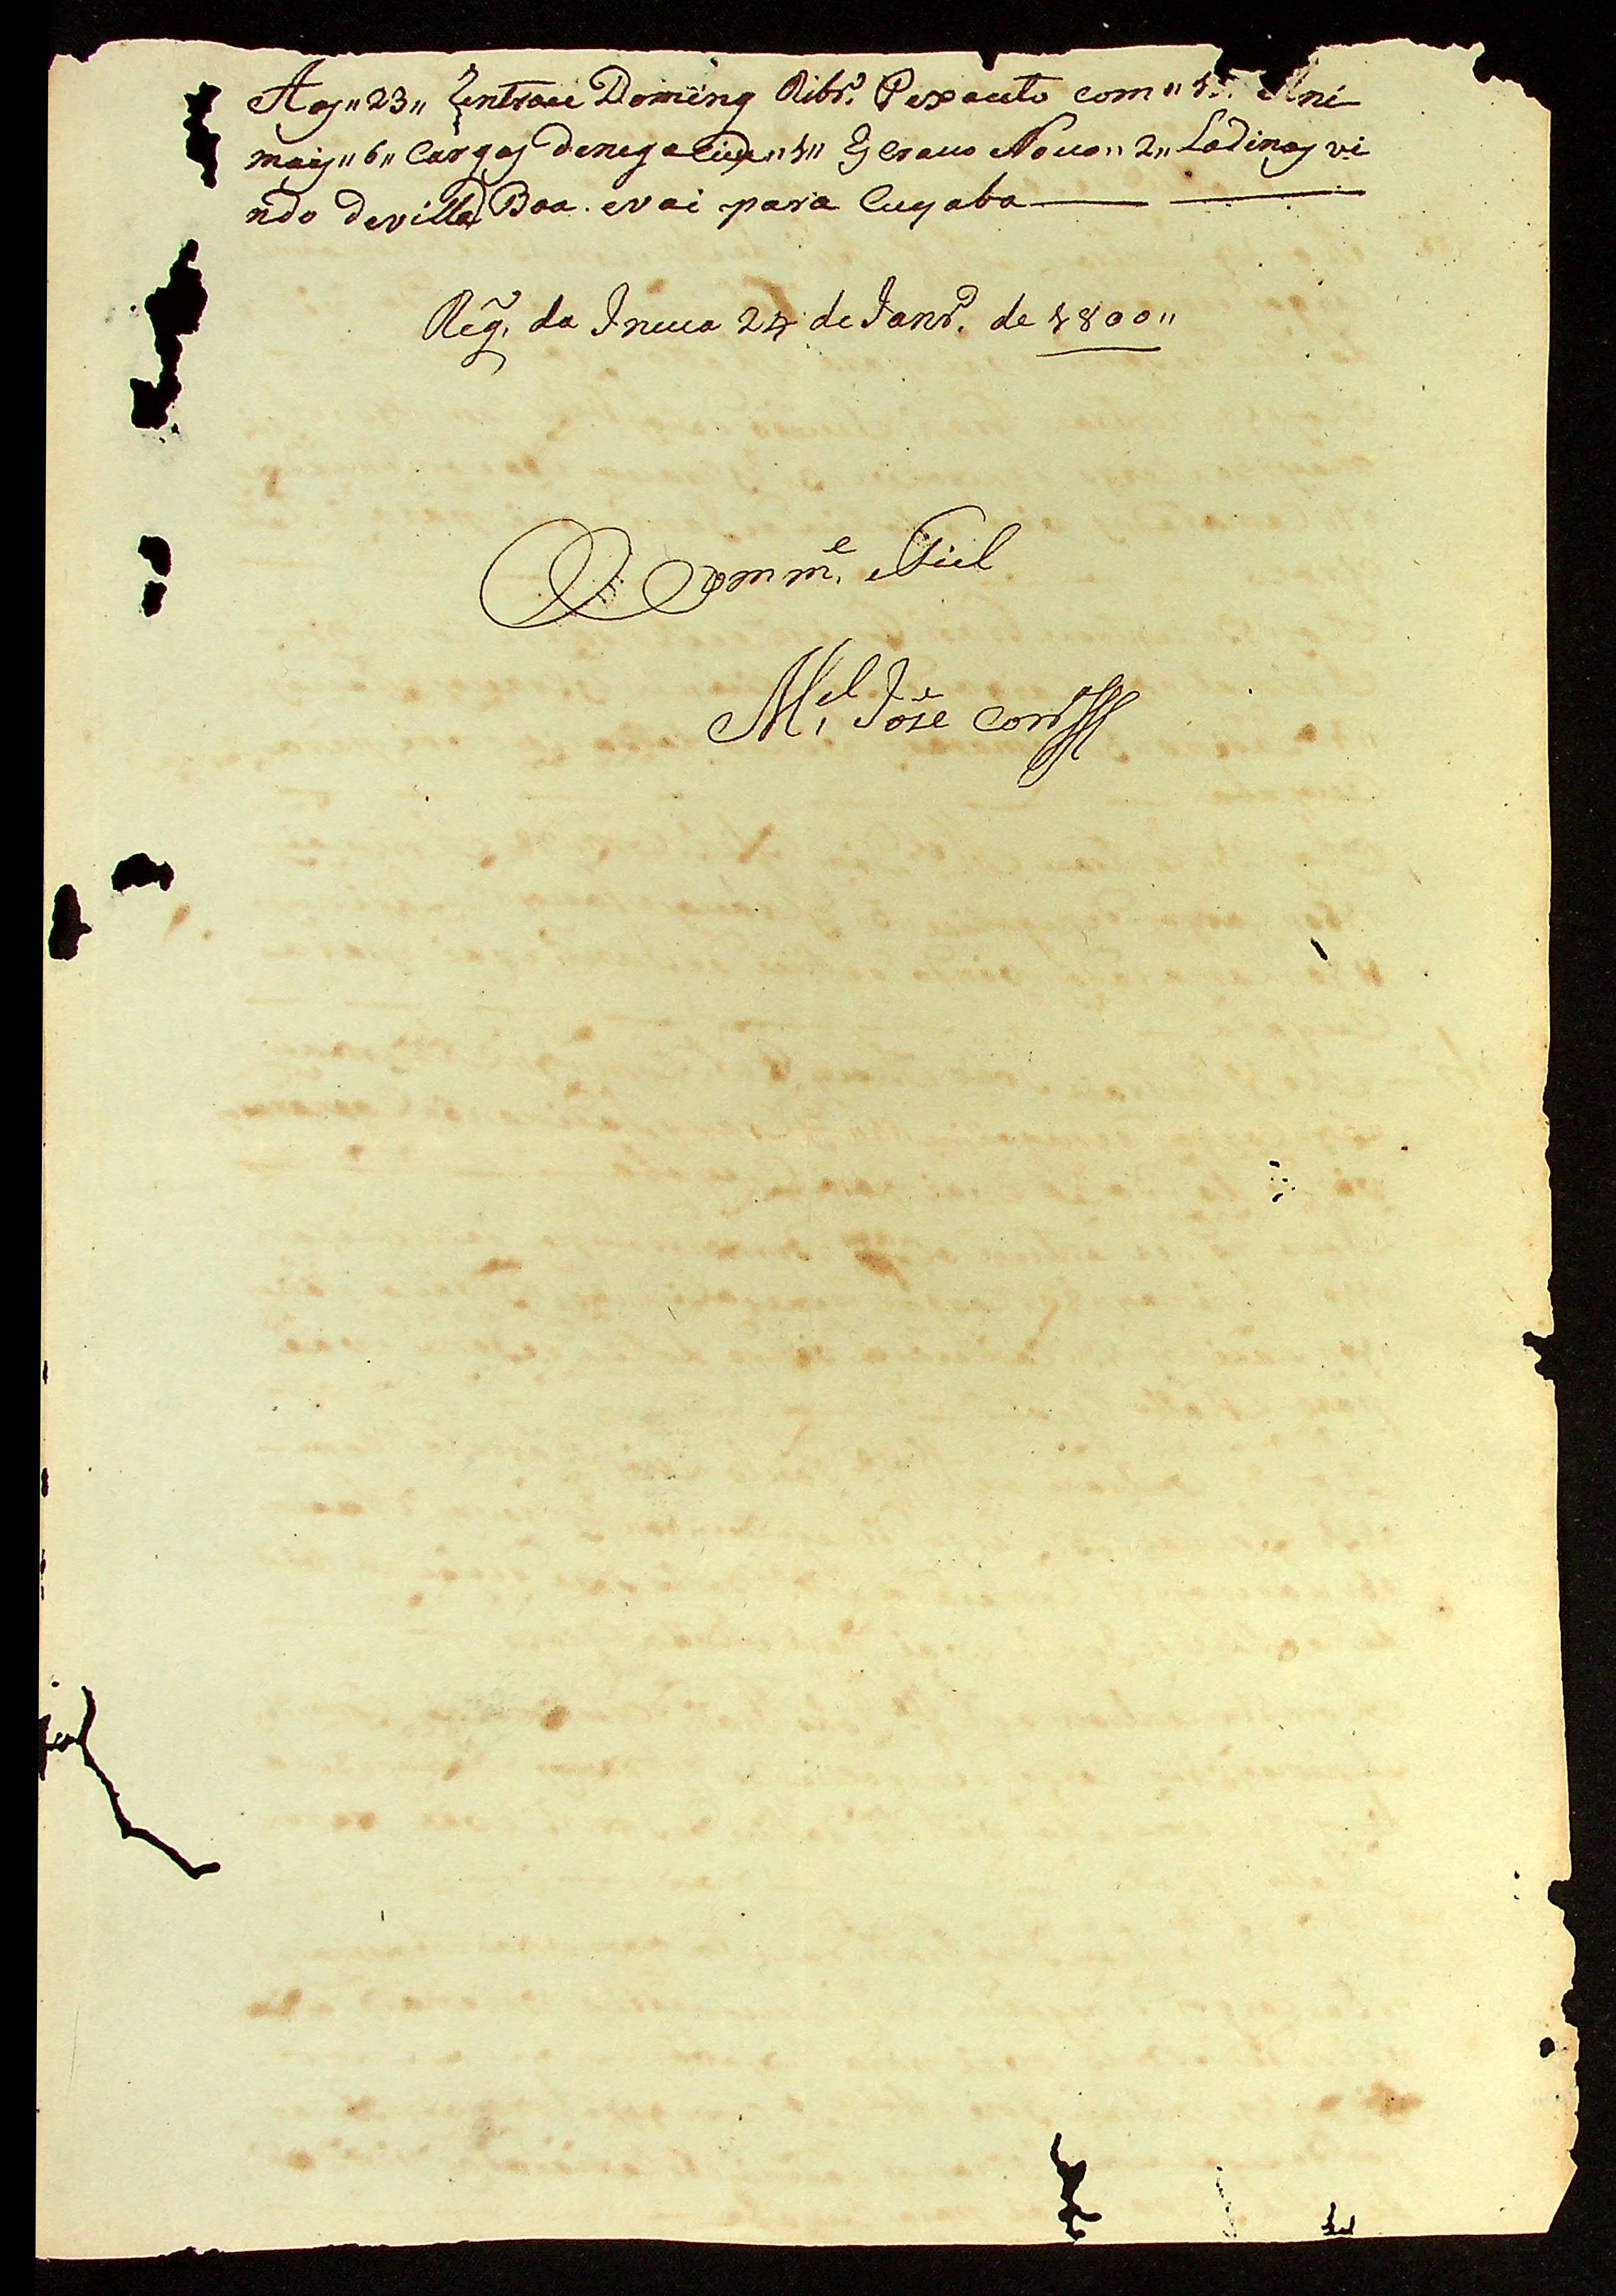 Aos,,23,, Entrou Doming Ribr.º Pexouto com,, Ani
mais,,6,, Cargas denegocio,,1,, Escrauo Nouo,,2,, Ladinos vi
ndo devilla Boa. evai para Cuyaba
Reg.º da Insua 24 de Janr.º de 1800,,
O Comm.e Fiel
M.el Joze Corr